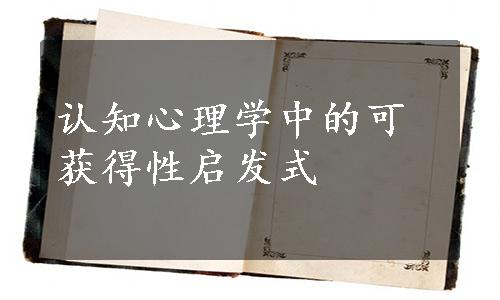 认知心理学中的可
获得性启发式